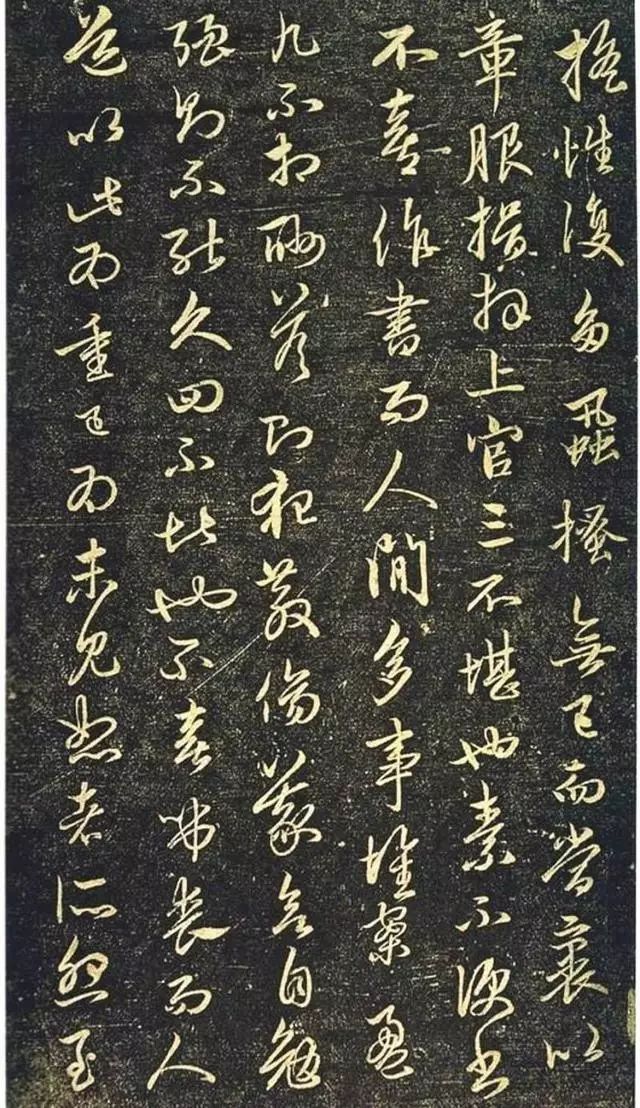 搖性復多蝨搔無已而當裹以
章服揖拜上官三不堪也素不便書
不喜作書而人間多事堆案盈
几不相酬答即犯教傷義欲自勉
强則不能久四不堪也不喜弔喪而人
道以此為重已為未見恕者所怨至